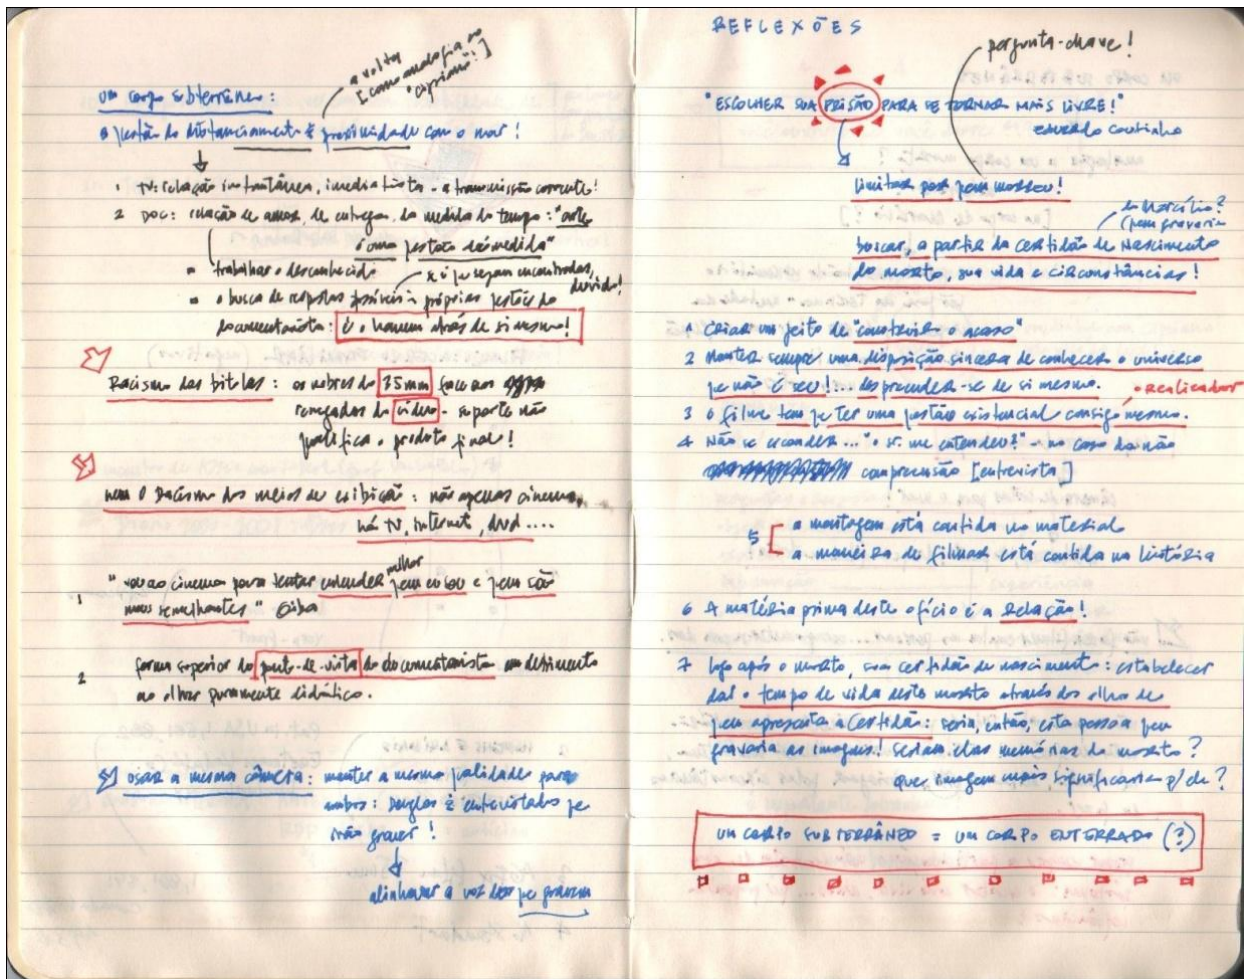 a volta
[com analogia ao
"caprianô!"]
um corpo subterrâneo:
a questão do distanciamento e proximidade com o mar!
1 TV: relação instantânea, imediatista - a transmissão corrente!
2 DOC: relação de amor, de entrega, da medida do tempo: "arte
é uma questão desmedida"
trabalhar o desconhecido
a busca de respostas possíveis à próprias questões do
documentarista: é o homem atrás de si mesmo!
x é que sejam encontradas,
duvido!
Racismo das bitolas: os nobres do 35mm face aos
renegados do vídeo - suporte não
qualifica o produto final!
nem o Racismo dos meios de exibição: não apenas cinema,
há TV, internet, dvd....
1 "vou ao cinema para tentar entender melhor quem eu sou e quem são
meus semelhantes"
2 forma superior do ponto-de-vista do documentarista em detrimento
ao olhar puramente didático.
usar a mesma câmera: manter a mesma qualidade para
ambos: Douglas e entrevistados que
irão gravar!
alinhavar a voz dos que gravam
REFLEXÕES
pergunta-chave!
"ESCOLHER SUA PRISÃO PARA SE TORNAR MAIS LIVRE!"
eduardo coutinho
limitar por quem morreu!
do Marcílio?
(quem gravaria
buscar, a partir da certidão de Nascimento
do morto, sua vida e circonstâncias!
1 criar um jeito de "construir o acaso"
2 Manter sempre uma disposição sincera de conhecer o universo
que não é seu!... desprender-se de si mesmo.
o realizador
3 o filme tem que ter uma questão existencial consigo mesmo.
4 Não se esconder... "o sr. me entendeu?" - no caso da não
compreensão [entrevista]
5 a montagem está contida no material
a maneira de filmar está contida na história
6 A matéria prima deste ofício é a Relação!
7 logo após o morto, sua certidão de nascimento: estabelecer
daí o tempo de vida deste morto através dos olhos de
quem apresenta a certidão: seria, então, esta pessoa quem
gravaria as imagens! seriam elas memórias do morto?
que imagem mais significaria p/ ele?
UM CORPO SUBTERRÂNEO = UM CORPO ENTERRADO (?)